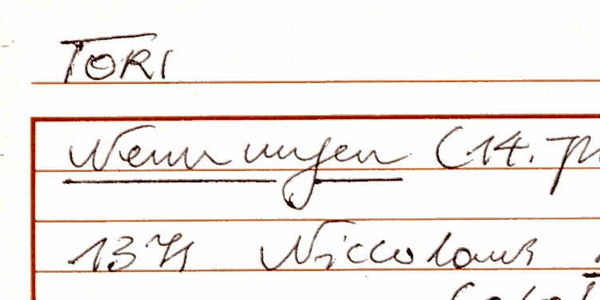 TORI
Nennungen (14. Jh
1371 Niccolaus